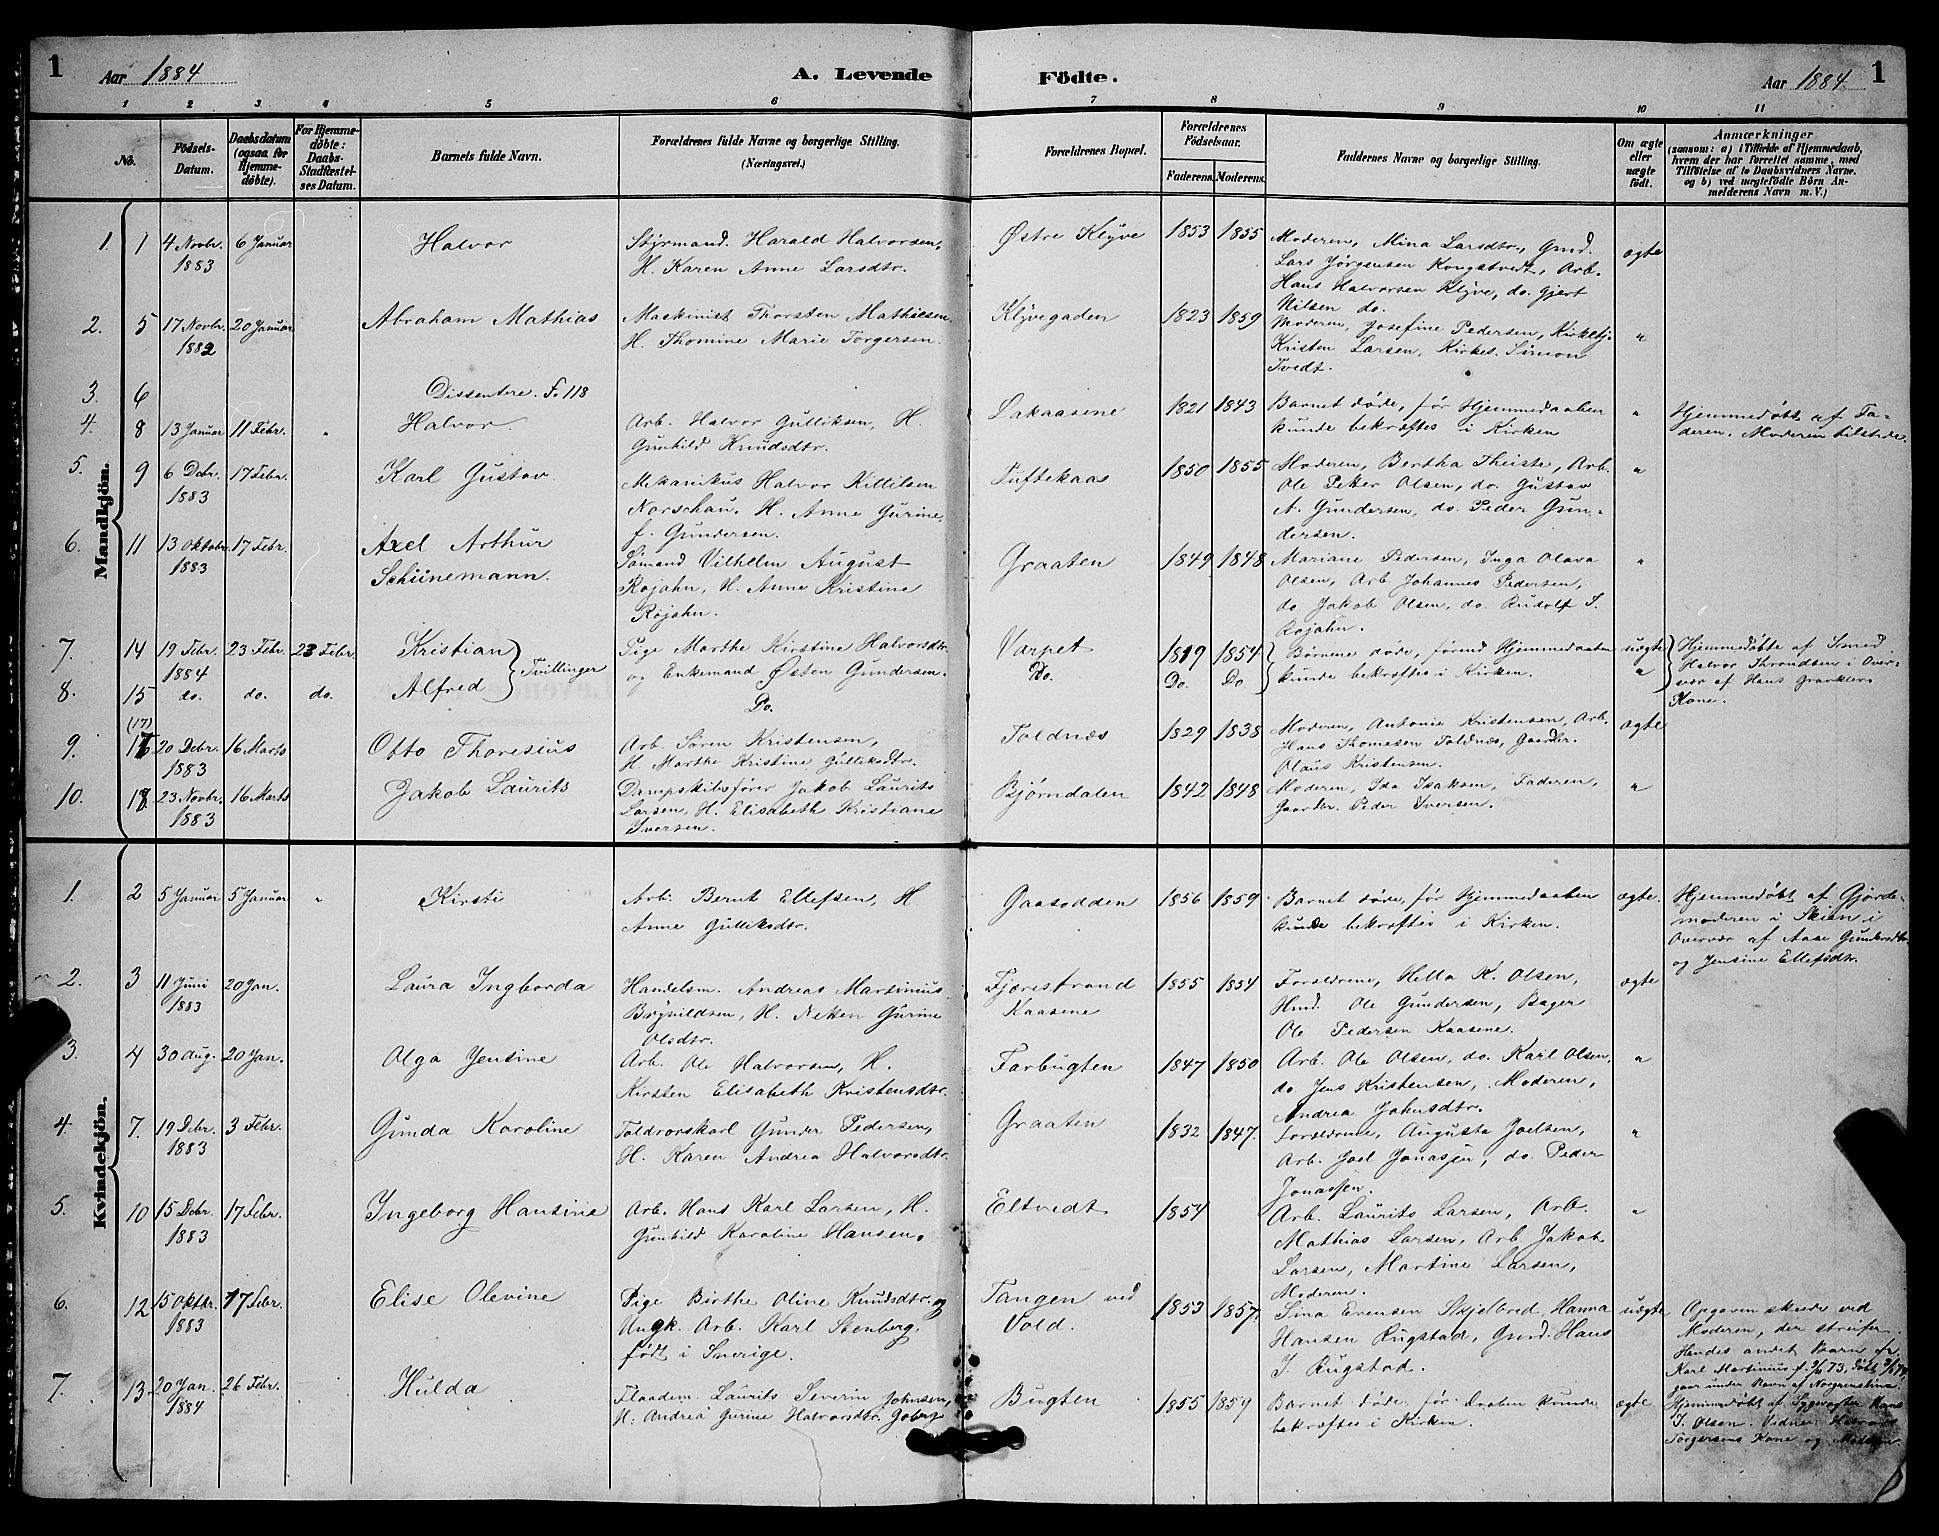 1 Aar 1884 A. Levende Födte. Aar 1884 1
1 2 3 4 5 6 7 8 9 10 11
No.
Födsels-Datum.
Daabsdatum (ogsaa for Hjemmedöbte).
For Hjemmedöbte: Daabs-Stadfæstelses Datum.
Barnets fulde Navn.
Forældrenes fulde Navne og borgerlige Stilling. (Næringsvei.)
Forældrenes Bopæl.
Forældrenes Födselsaar.
Faderens. Moderens.
Faddernes Navne og borgerlige Stilling.
Om ægte eller uægte födt.
Anmærkninger
(saasom: a) i Tilfælde af Hjemmedaab, hvem der har forrettet samme, med Tilföielse af to Daabsvidners Navne, og b) ved uægtefödte Börn Anmelderens Navn m. V.)
Mandkjön.
1. 1 4 Novbr. 1883 6 Januar Halvor
Styrmand. Harald Halvorsen,
H. Karen Anne Larsdtr.
Østre Klyve 1853 1855
Moderen, Mina Larsdtr., Gmd.
Lars Jörgensen Kongstvedt, Arb.
Hans Halvorsen Klyve, do. Gjert
Nilsen do.
ægte
2. 5 17 Novbr. 1882 20 Januar Abraham Mathias
Maskinist Thorsten Mathisen,
H. Thomine Marie Torgersen.
Klyvegaden 1823 1859
Moderen, Josefine Pedersen, Kirketj.
Kristen Larsen, Kirkes. Simon
Tvedt.
"
3. 6 Dissentere. F. 118
4. 8 13 Januar 11 Febr. " Halvor.
Arb. Halvor Gulliksen, H.
Gunhild Knudsdtr.
Lakaasene 1821 1843
Barnet döde, för Hjemmedaaben
kunde bekræftes i Kirken
"
Hjemmedöbt af Faderen. Moderen tilstede.
5. 9 6 Debr. 1883 17 Febr. Karl Gustav.
Mekanikus Halvor Kittilsen
Norschau. H. Anne Gurine,
f. Gundersen.
Tuftekaas 1850 1855
Moderen, Bertha Theiste, Arb.
Ole Petter Olsen, do. Gustav
A. Gundersen, do. Peder Gundersen.
"
6. 11 13 Oktobr. 1883 17 Febr. Axel Arthur
Schünemann.
Sömand Vilhelm August
Röjahn, H. Anne Kristine
Röjahn.
Graaten 1849 1848
Mariane Pedersen, Inga Olava
Olsen, Arb Johannes Pedersen,
do. Jakob Olsen, do. Rudolf S.
Rojahn.
"
7. 14 19 Febr. 1884 23 Febr. 23 Febr. Kristian
8. 15 do. do. do. Alfred Tvillinger
Pige Marthe Kirstine Halvorsdtr.
og Enkemand Østen Gundersen.
Do.
Varpet 1819 1854
Do. Do. Do
Börnene döde, förend Hjemmedaaben
kunde bekræftes i Kirken.
uægte
"
Hjemmedöbte af Smed
Halvor Throndsen i Overvær af Hans Gravklevs
Kone.
9. (17) 17 20 Debr. 1883 16 Marts Otto Thoresius
Arb. Sören Kristensen,
H. Marthe Kristine Gulliksdtr.
Toldnæs 1829 1838
Moderen, Antonie Kristensen, Arb.
Hans Thomesen Toldnæs, Gaardbr.
Olaus Kristensen.
ægte
10. 18 23 Novbr. 1883 16 Marts Jakob Laurits
Dampskibsförer Jakob Laurits
Larsen, H. Elisabeth Kristiane
Iversen.
Bjørndalen 1842 1848
Moderen, Ida Isaksen, Faderen,
Gaardbr. Peder Iversen.
"
Kvindekjön.
1. 2 5 Januar 5 Januar " Kirsti
Arb. Bernt Ellefsen, H
Anne Gulliksdtr.
Gaasodden 1856 1859
Barnet döde, för Hjemmedaaben
kunde bekræftes i Kirken.
ægte.
Hjemmedöbt af Gjordemoderen i Skien i
Overvær af Aase
og Jensine Ellefsdtr.
2. 3 11 Juni 1883 20 Jan. Laura Ingborda
Handelsm. Andreas Martinius
Brynildsen, H. Netten Gurine
Olsdtr.
Fjærestrand
Kaasene
1855 1854
Forældrene, Hella K. Olsen,
Hmd. Ole Gundersen, Bager
Ole Pedersen Kaasene.
ægte
3. 4 30 Aug. 20 Jan. Olga Jensine
Arb. Ole Halvorsen, H.
Kirsten Elisabeth Kristensdtr.
Farbugten 1847 1850
Arb. Ole Olsen, do. Karl Olsen,
do Jens Kristensen, Moderen,
Andrea Johnsdtr.
"
4. 7. 19 Debr. 1883 3 Febr. Gunda Karoline
Toldrorskarl Gunder Pedersen,
H. Karen Andrea Halvorsdtr.
Graaten 1832 1847.
Forældrene, Augusta Joelsen,
Arb. Joel Jonassen, do. Peder
Jonassen.
"
5. 10 15 Debr. 1883 17 Febr. Ingeborg Hansine
Arb. Hans Karl Larsen, H.
Gunhild Karoline Hansen.
Eltvedt 1854
Arb. Laurits Larsen, Arb.
Mathias Larsen, Arb Jakob
Larsen, Martine Larsen,
Moderen.
"
6. 12 15 Oktbr. 1883 17 Febr. Elise Olevine
Pige Birthe Oline Knudsdtr. og
Ungk. Arb. Karl Stenberg,
født i Sverige.
Tangen ved
Vold.
1853 1857.
Sina Evensen Skjelbred, Hanna
Hansen Rugstad, Gmd. Hans
J. Rugstad.
uægte
Opgaven skede ved
Moderen, der streifer.
Hendes andet Barn fr.
Karl Martinius f.
gaar under Navn af
7. 13. 20 Jan. 1884 26 Febr. Hulda
Flaadem. Laurits Severin Johnsen,
H. Andrea Gurine Halvorsdtr.
Bugten 1855 1859
Barnet döde, för Daaben kunde
bekræftes i Kirken.
ægte
Hjemmedöbt af Sygevogter Hans
J. Olsen. Vidner: Halvor
Torgersens Kone og Moderen.